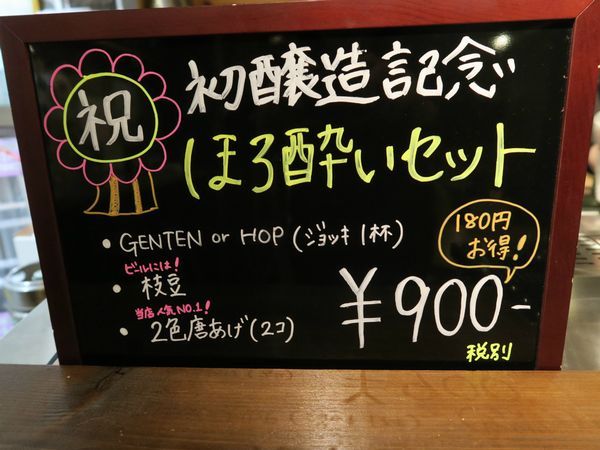 祝
初醸造記念
ほろ酔いセット
・GENTEN or HOP (ジョッキ1杯)
ビールには!
・枝豆
当店人気NO.1!
・2色唐あげ(2コ)
180円
お得!
¥900-
税別